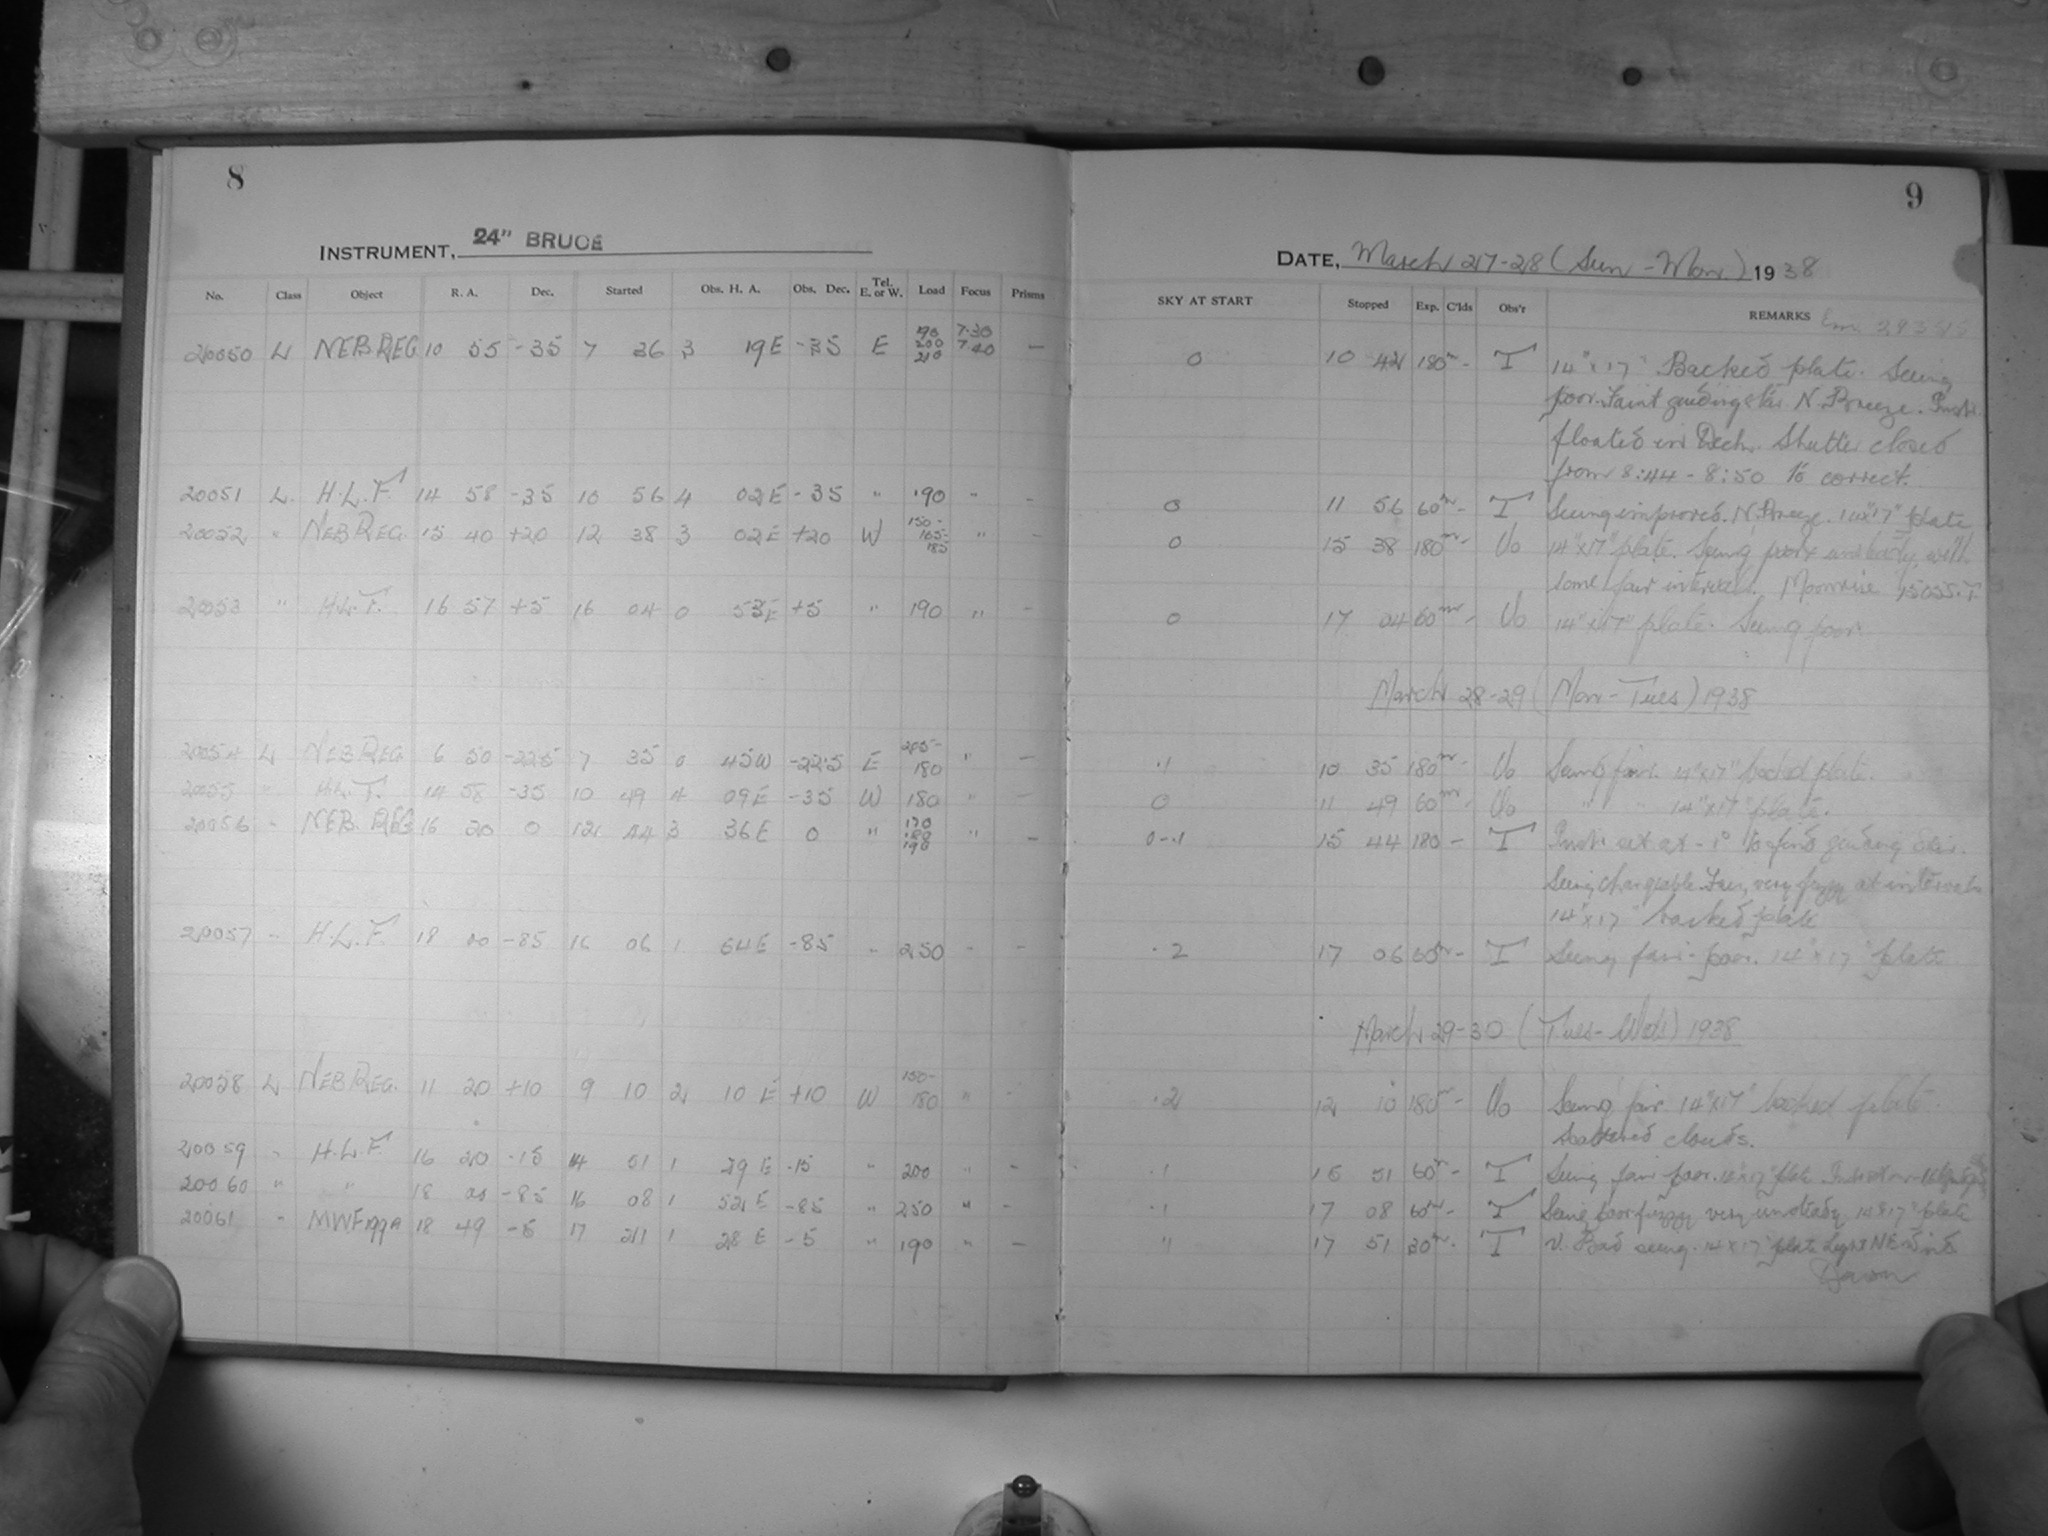 8
9
INSTRUMENT, 24" BRUCE
DATE, March 27-28 (Sun - Mon) 1938
No. Class Object R. A. Dec. Started Obs. H. A. Obs. Dec. Tel. E. or W. Load Focus Prisms SKY AT START Stopped Exp. C'lds Obs'r REMARKS
20050 L NEB REG 10 55 -35 7 36 3 19 E -35 E 190 200 210 7.30 7.40 — 0 10 42 180m - T 14" x 17" Backed plate. Seeing
poor. Faint guiding star. N. Breeze. Instr.
floated in Dech. Shutter closed
from 8:44 - 8:50 to correct.
20051 L H.L.F. 14 58 -35 10 56 4 02 E -35 " 190 " - 0 11 56 60m - T Seeing improved. N. Breeze. 14"x17" plate
20052 " NEB REG. 15 40 +20 12 38 3 02 E +20 W 150- 165- 185 " - 0 15 38 180m - Uo 14"x17" plate. Seeing poor & unsteady, with
some fair intervals. Moonrise
20053 " H.L.F. 16 57 +5 16 04 0 53 E +5 " 190 " - 0 17 04 60m - Uo 14"x17" plate. Seeing poor.
March 28-29 (Mon - Tues) 1938
20054 L NEB REG 6 50 -22.5 7 35 0 45 W -22.5 E 180 " — .1 10 35 180m - Uo Seeing fair. 14"x17" backed plate.
20055 " H.L.F. 14 58 -35 10 49 4 09 E -35 W 180 " — 0 11 49 60m - Uo " " 14"x17" plate.
20056 - NEB. REG 16 20 0 12 44 3 36 E 0 " 170 180 190 " — 0-.1 15 44 180 - T Instr. set at -1° to find guiding star.
Seeing changeable. Fair, very fuzzy at intervals
14" x 17" backed plate
20057 - H.L.F. 18 00 -85 16 06 1 54 E -85 " 250 - - .2 17 06 60m - T Seeing fair - poor. 14" x 17" plate
March 29-30 (Tues - Wed) 1938
20058 L NEB REG. 11 20 +10 9 10 2 10 E +10 W 150- 180 " - .2 12 10 180m - Uo Seeing fair 14"x17" backed plate
Scattered clouds.
20059 - H.L.F. 16 20 -15 14 51 1 29 E -15 " 200 " - .1 15 51 60m - T Seeing fair - poor. 14"x17" plate.
20060 " " 18 00 -85 16 08 1 52 E -85 " 250 " - .1 17 08 60m - T Seeing poor fuzzy very unsteady 14"x17" plate
20061 - MWF 199A 18 49 -5 17 21 1 28 E -5 " 190 " — " 17 51 30m - T V. Bad seeing. 14"x17" plate Light NE wind
Dawn